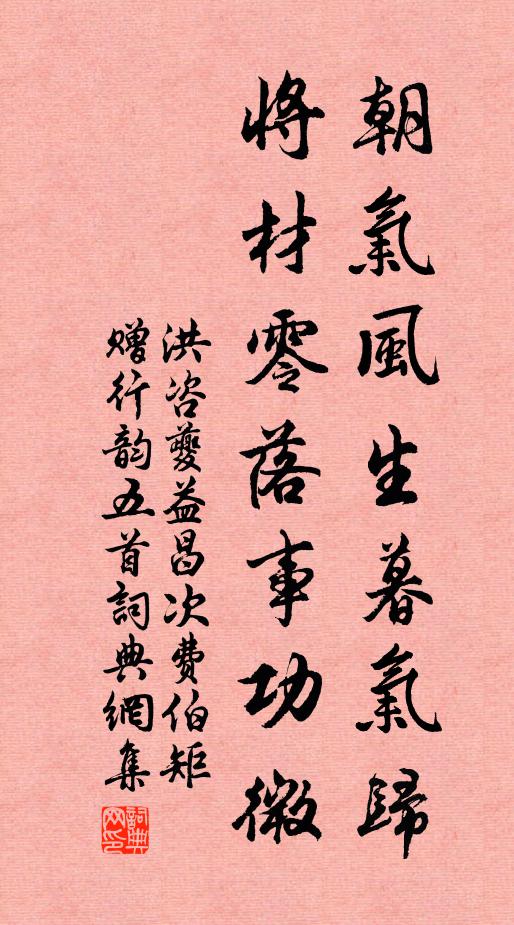 朝氣風生暮氣歸
將材零落事功微
洪咨夔益昌次費伯矩
贈行韵五首詞典網集
詞典网印